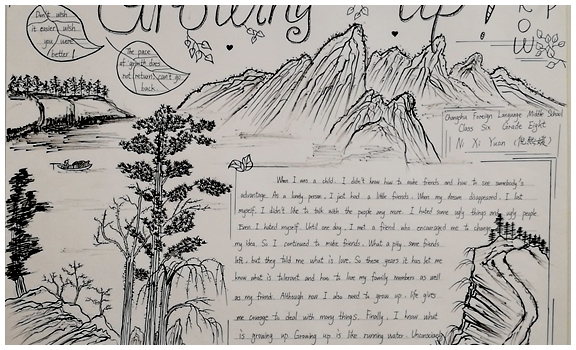 Growing up!
Don't wish
it easier, wish
you were
better!
The pace
of growth does
not return can't go
back.
Changsha Foreign Language Middle School
Class Six Grade Eight
Ni Xi Yuan
When I was a child, I didn't know how to make friends and how to see somebody's
advantage. As a lonely person, I just had a little friends. When my dream disappeared, I lost
myself. I didn't like to talk with the people any more. I hated some ugly things and ugly people.
Even I hated myself. Until one day, I met a friend who encouraged me to change
my idea. So I continued to make friends. What a pity, some friends
left, but they told me what is love. So these years it has let me
know what is tolerant and how to love my family members as well
as my friend. Although now I also need to grow up, life gives
me courage to deal with many things. Finally, I know what
is growing up. Growing up is like running water.